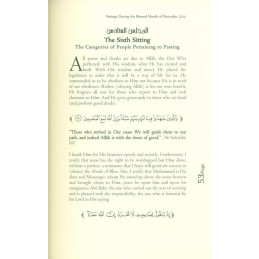 Sittings During the Blessed Month of Ramadan
المجلس السادس
The Sixth Sitting
The Categories of People Pertaining to Fasting
All praise and thanks are due to Allah; the One Who
perfected, with His wisdom, what He created and
built. With His wisdom and mercy He placed the
legislations in order that it will be a way of life for us. He
commanded us to be obedient to Him and He is not in need of
our obedience. Rather, (obeying Allah) is for our own benefit.
He forgives all sins for those who repent with a sound and
chances to Him. And He gives generously to those who obey
(and perform good deeds).
﴿ وَالَّذِينَ جَاهَدُوا فِينَا لَنَهْدِيَنَّهُمْ سُبُلَنَا وَإِنَّ اللَّهَ لَمَعَ الْمُحْسِنِينَ ﴾
"Those who strived in Our cause We will guide them to our
path, and indeed Allah is with the doers of good."
I thank Him for His bounties openly and secretly. Furthermore, I
testify that none has the right to be worshipped but Him; without
a partner, a testimony that I hope will grant me success to
obtain the Abode of Bliss. Also, I testify that Muhammad is His
slave and Messenger;
and brought close to Him, peace be upon him and upon his
companion Abu Bakr; the one who carried out the acts of worship
and is pleased with the responsibility, the one who is honored by
his Lord in His saying:
53
Page